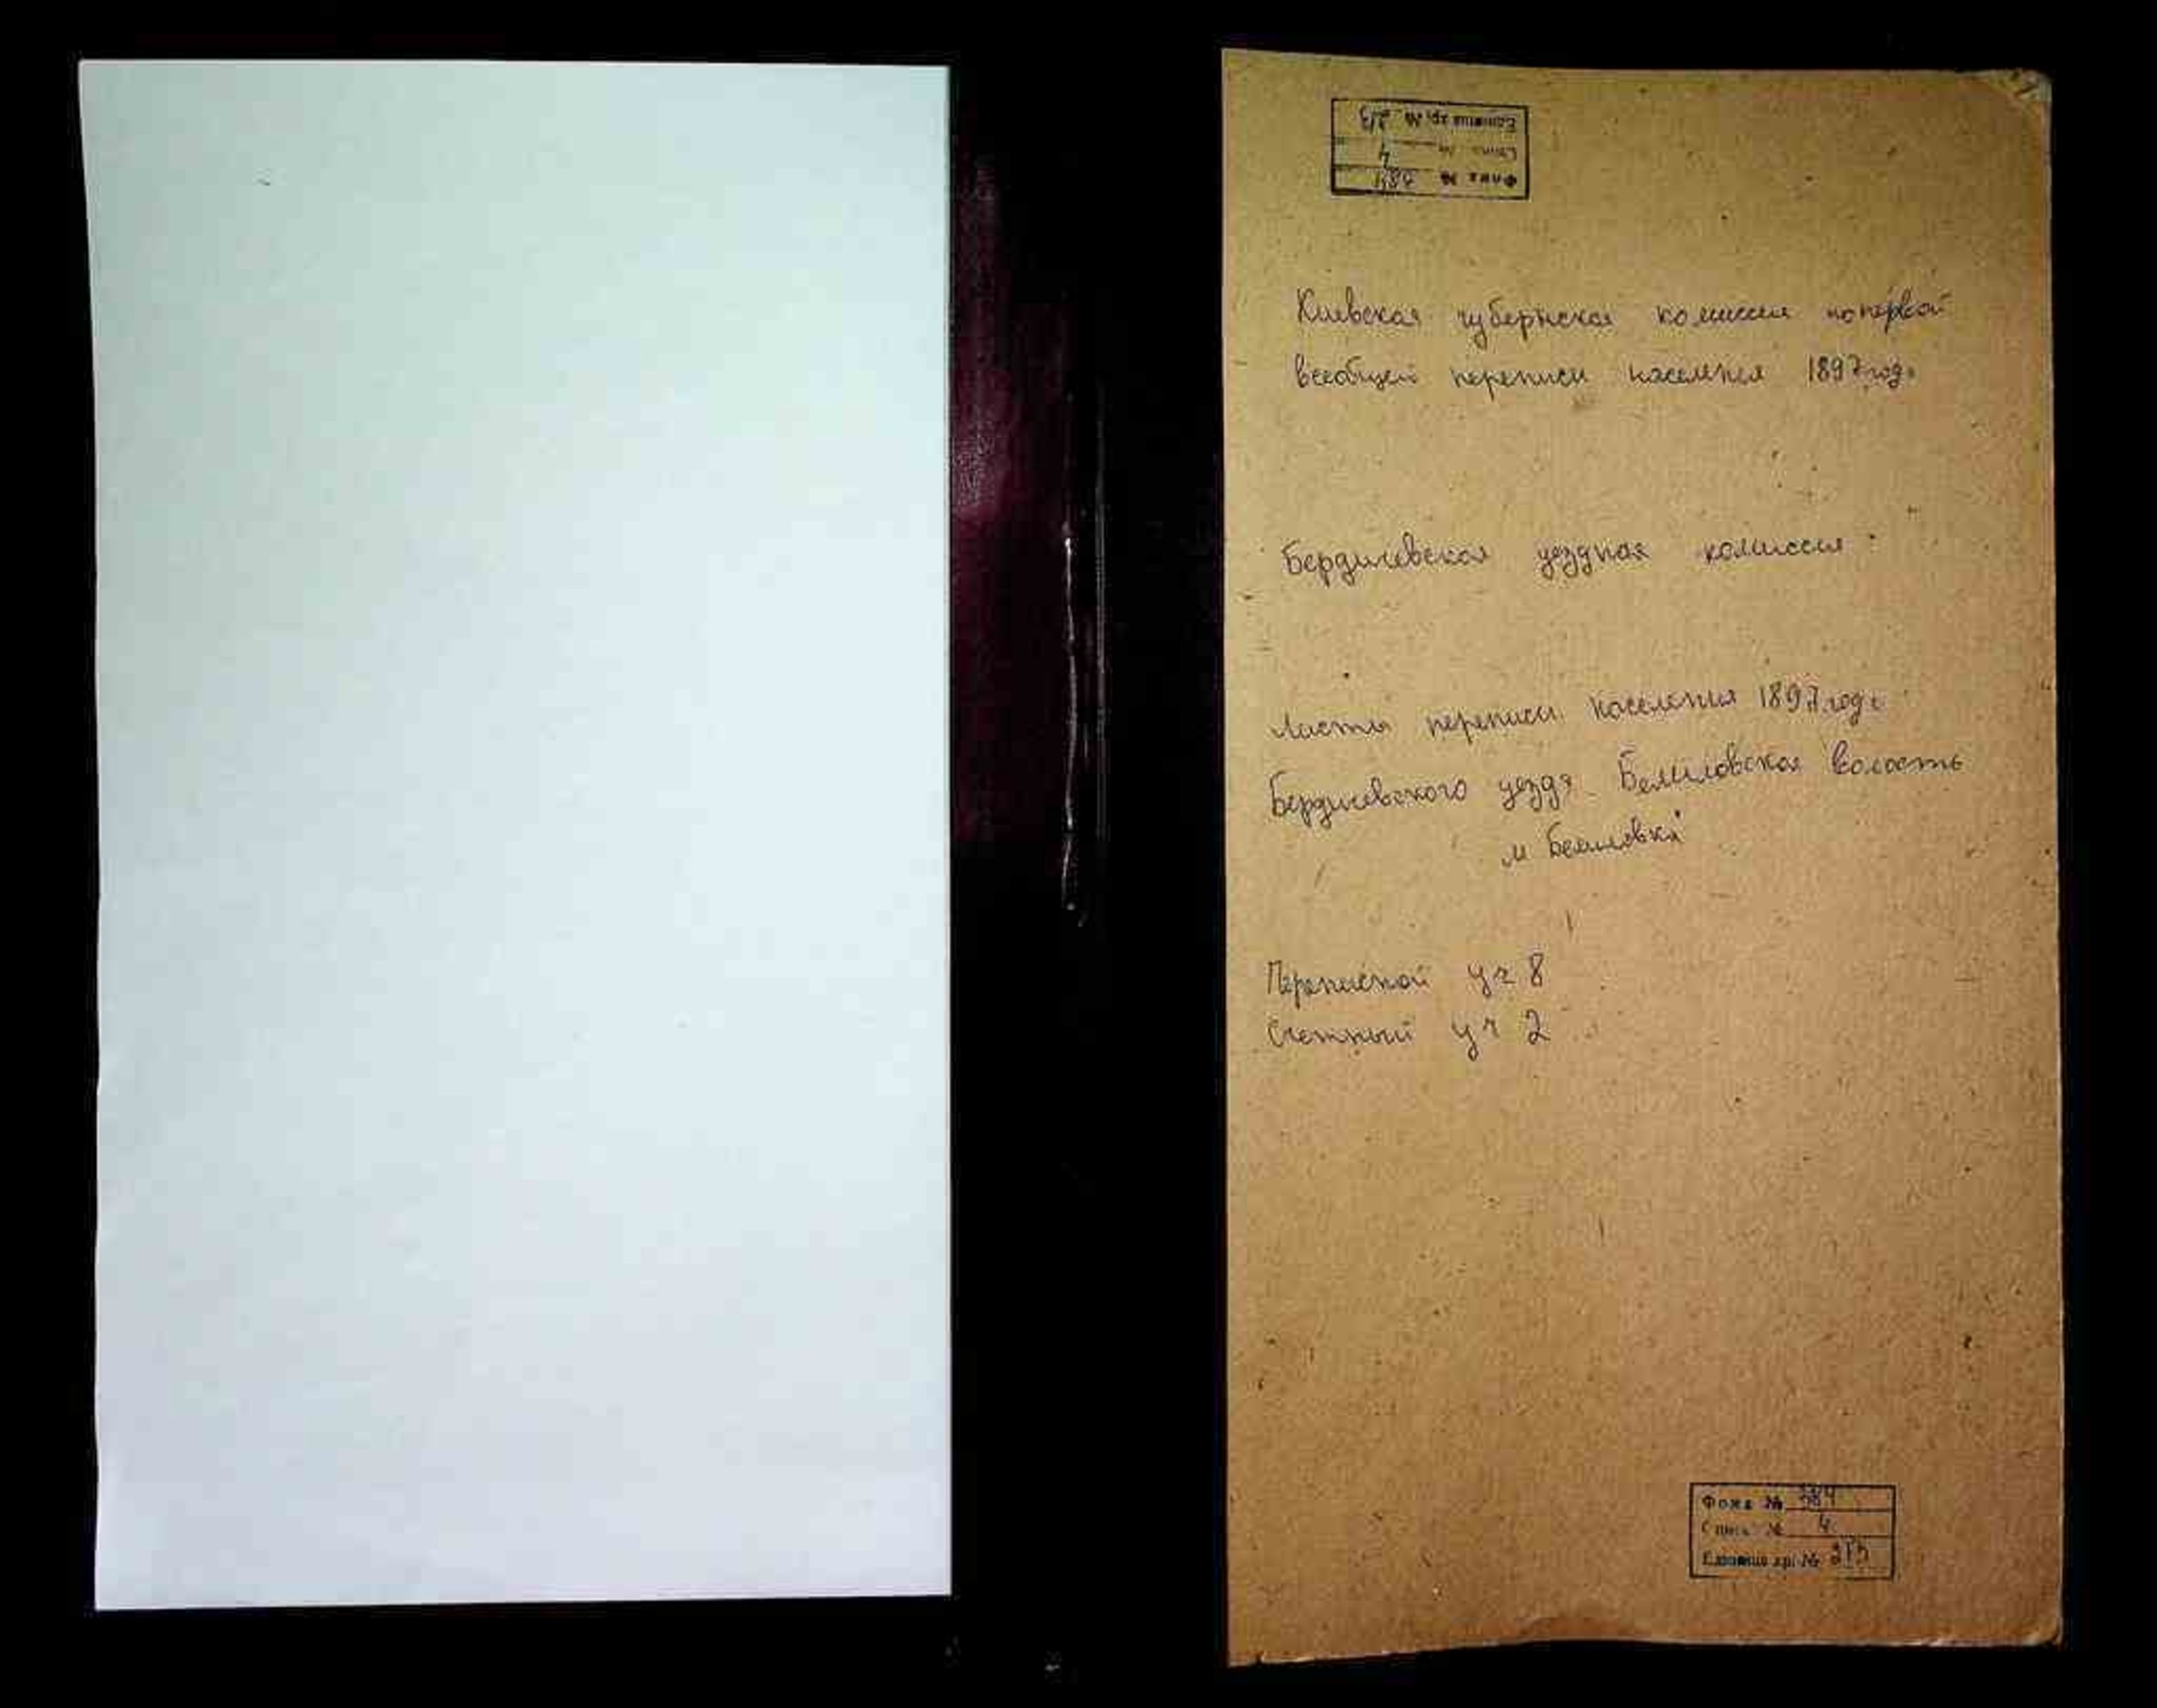 Киевская губернская комиссия по первой
всеобщей переписи населения 1897 года
Бердичевская уездная комиссия
Листы переписи населения 1897 года
Бердичевского уезда Белиловская волость
м Белиловка
Переписной уч 8
Счетный уч 2
Фонд № 384
Опись № 4
Единица хр. №
Фонд № 384
Опись № 4
Единица хр. №